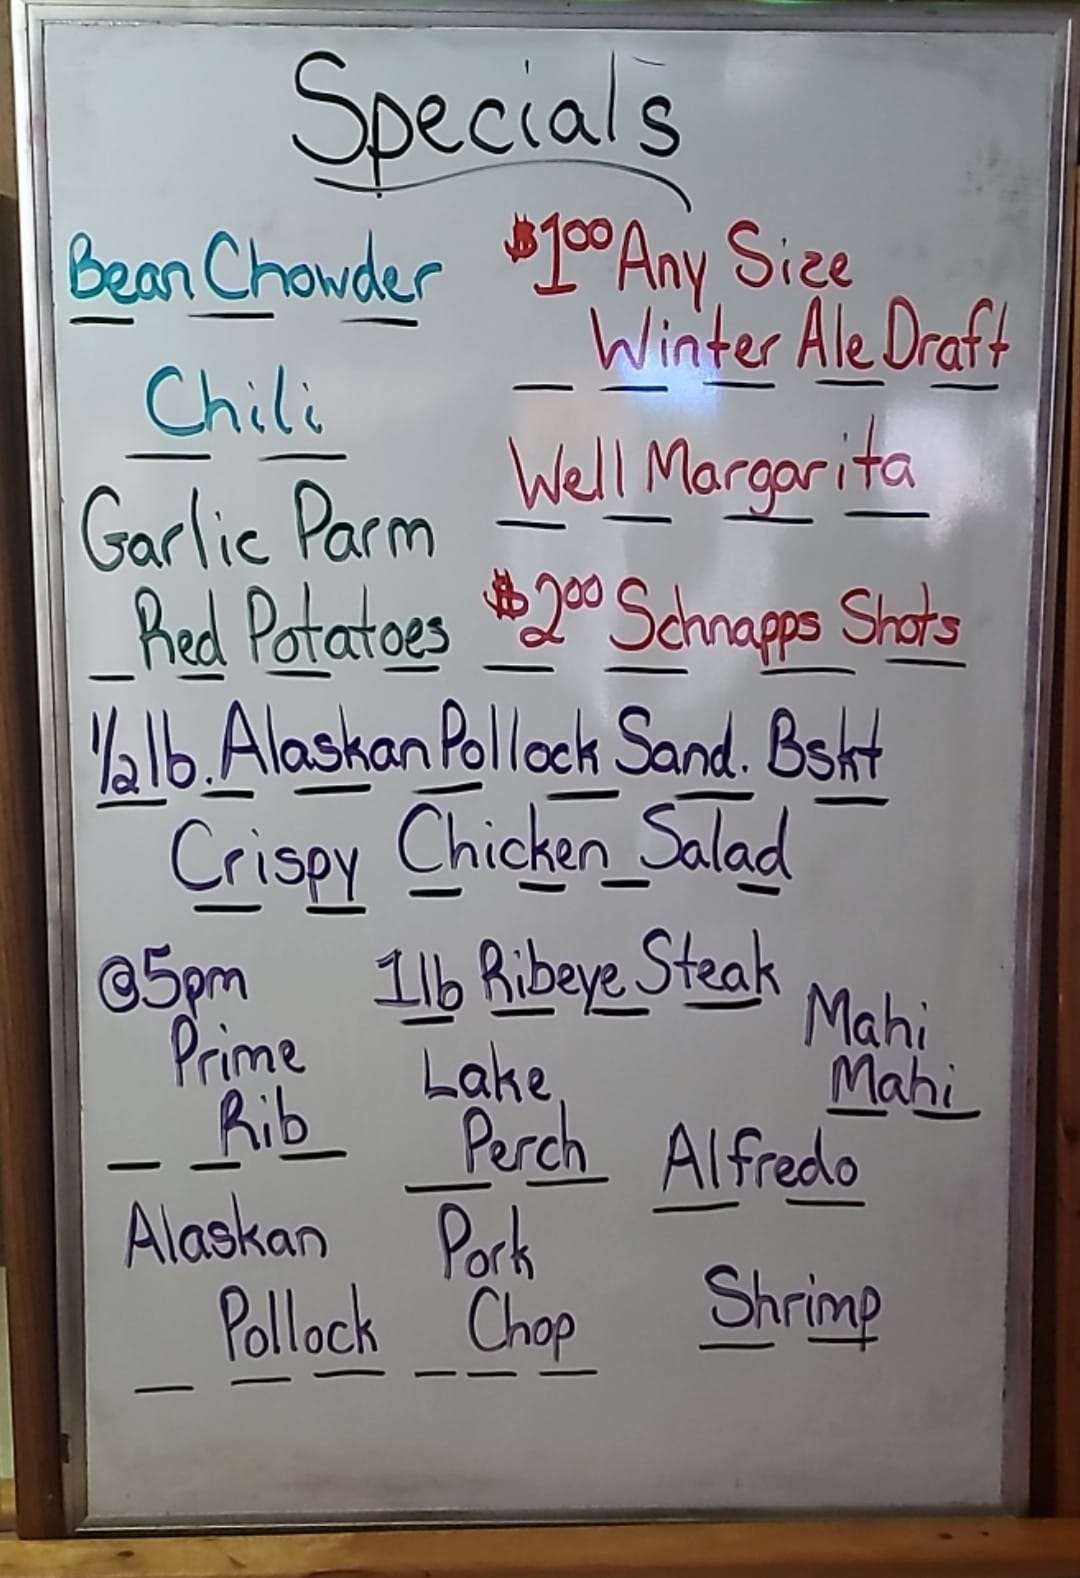 Specials
Bean Chowder
$1.00 Any Size
Winter Ale Draft
Chili
Well Margarita
Garlic Parm
Red Potatoes
$2.00 Schnapps Shots
1/2 lb. Alaskan Pollock Sand. Bskt
Crispy Chicken Salad
@5pm
Prime
Rib
1lb Ribeye Steak
Mahi
Mahi
Lake
Perch
Alfredo
Alaskan
Pollock
Pork
Chop
Shrimp